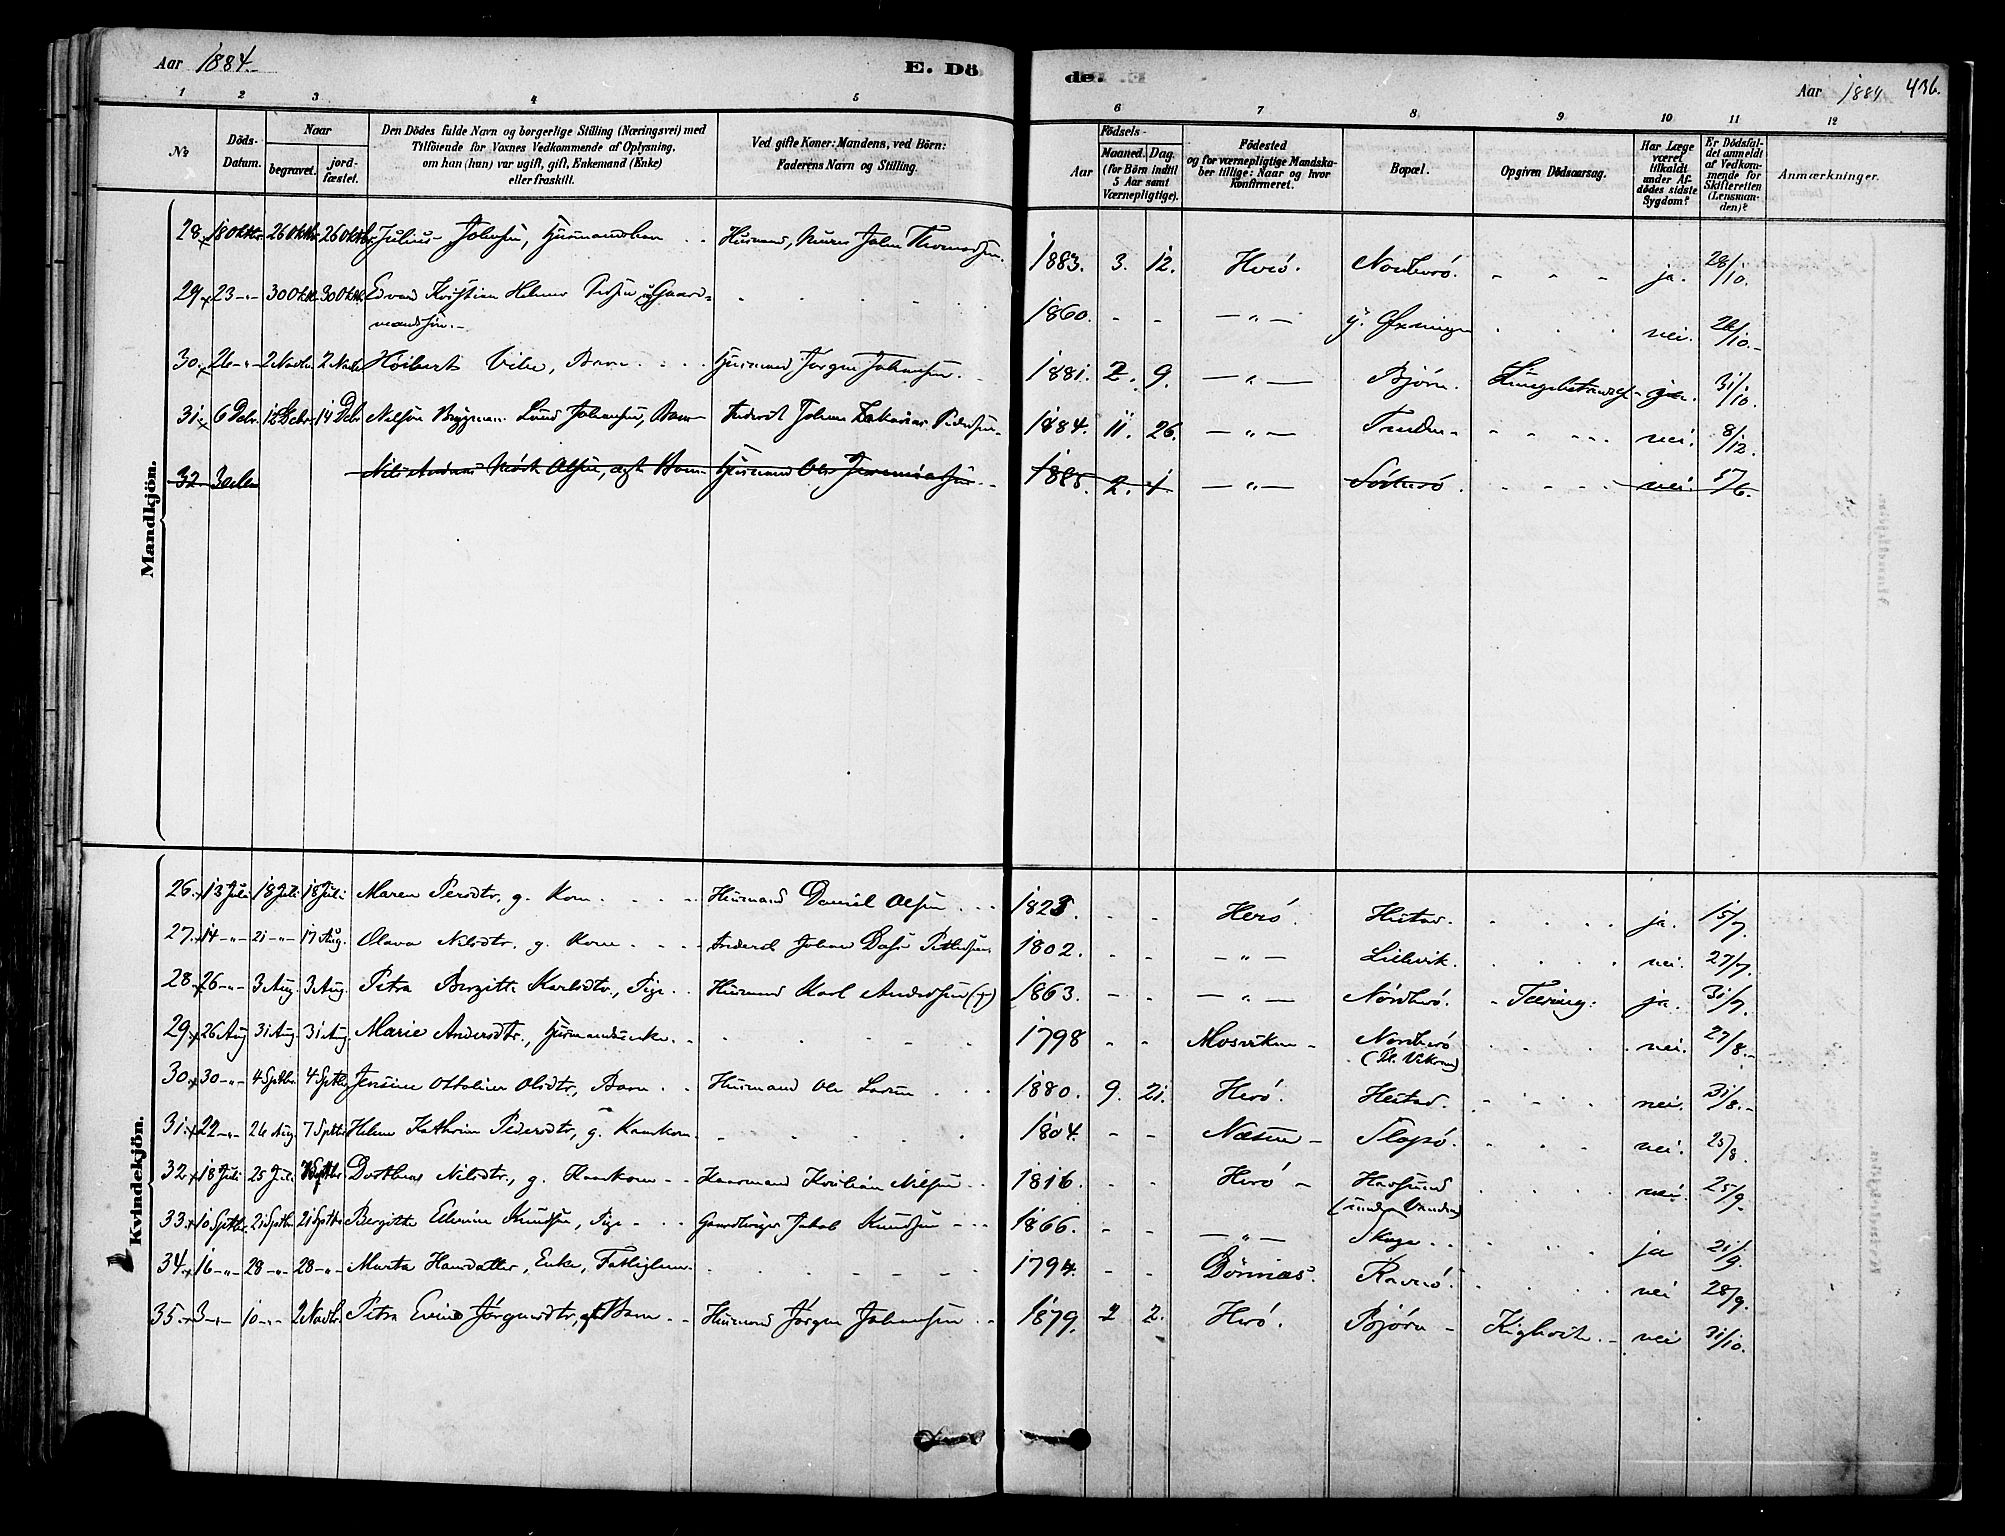 Aar 1884.
E. Dö
de.
Aar 1884
436.
1 2 3 4 5 6 7 8 9 10 11 12
No
Döds-Datum.
Naar
begravet.
jord-fæstet.
Den Dödes fulde Navn og borgerlige Stilling (Næringsvei) med
Tilföiende for Voxnes Vedkommende af Oplysning,
om han (hun) var ugift, gift, Enkemand (Enke)
eller fraskilt.
Ved gifte Koner: Mandens, ved Börn:
Faderens Navn og Stilling.
Födsels-
Aar
Maaned. Dag.
(for Börn indtil
5 Aar samt
Værnepligtige).
Födested
og for værnepligtige Mandska-
ber tillige: Naar og hvor
konfirmeret.
Bopæl.
Opgiven Dödsaarsag.
Har Læge
været
tilkaldt
under Af-
dödes sidste
Sygdom?
Er Dödsfal-
det anmeldt
af Vedkom-
mende for
Skifteretten
(Lensman-
den)?
Anmærkninger.
Mandkjön.
28. 18 Oktbr 26 Oktbr 26 Oktbr Julius Johnsen, Husmand, John Thomassen. 1883. 3. 12. Herö. Nordherö. ja. 28/10.
29. 23 -"- 30 Oktb 30 Oktb Edvard Kristian Helmer Gaard-
mandssön. 1860. - - -"- y. Øxningen nei.
30. 26 -"- 2 Novbr. 2 Novbr Barn Husmand Jörgen Johansen. 1881. 2. 9. -"- Björn. ja. 31/10.
31. 6 Debr. 12 Debr. 14 Debr Lund Johansen, Barn Inderst Johan Zakarias Pedersen 1884. 11. 26. -"- nei. 8/12.
32 Nils Andreas Olsen, ægt. Barn Husmand Ole Jeremiassen 1885. 2. 1. -"- Sörherö. nei.
Kvindekjön.
26. 13 Juli 18 Juli 18 Juli Maren Persdtr. g. Kone Husmand Daniel Olsen 1823. - - Herö. Heistad. ja. 15/7.
27. 14 -"- 21 -"- 17 Aug. Olava Nilsdtr. g. Kone Inderst Johan 1802. - - -"- Lillevik. nei. 27/7.
28. 26 -"- 3 Aug. 3 Aug. Petra Bergitte Karlsdtr., Pige Husmand Karl Anderssen (†) 1863. - - -"- Nordherö. Tæring. ja. 31/7.
29. 26 Aug 31 Aug. 31 Aug. Marie Andersdtr., Husmandsenke 1798 Mosviken Nordherö nei. 27/8.
30. 30 -"- 4 Septbr. 4 Septbr Jensine Ottoline Olsdtr., Barn Husmand Ole 1880. 9. 21. Herö. Heistad. nei. 31/8.
31. 22 -"- 26 Aug. 7 Septbr Kathrine Pedersdtr, g. 1804. - - Næsna Flapö. nei. 25/8.
32. 18 Juli 25 Juli 7 Septbr Dorthea Nilsdtr., g. Kristian Nilsen 1816. - - Herö nei. 25/9.
33. 10 Septbr. 21 Septbr 21 Septbr Bergitte Knudsen, Pige Jakob Knudsen 1866. - - -"- ja 21/9.
34. 16 -"- 28 -"- 28 -"- Marta Hansdatter, Enke, Fattiglem 1794. - - Dönnæs. nei 28/9.
35. 3 -"- 10 -"- 2 Novbr. Petra Jörgensdtr, ægt. Barn Husmand Jörgen Johansen 1879. 2 2. Herö. Björn Kighoste. nei 31/10.